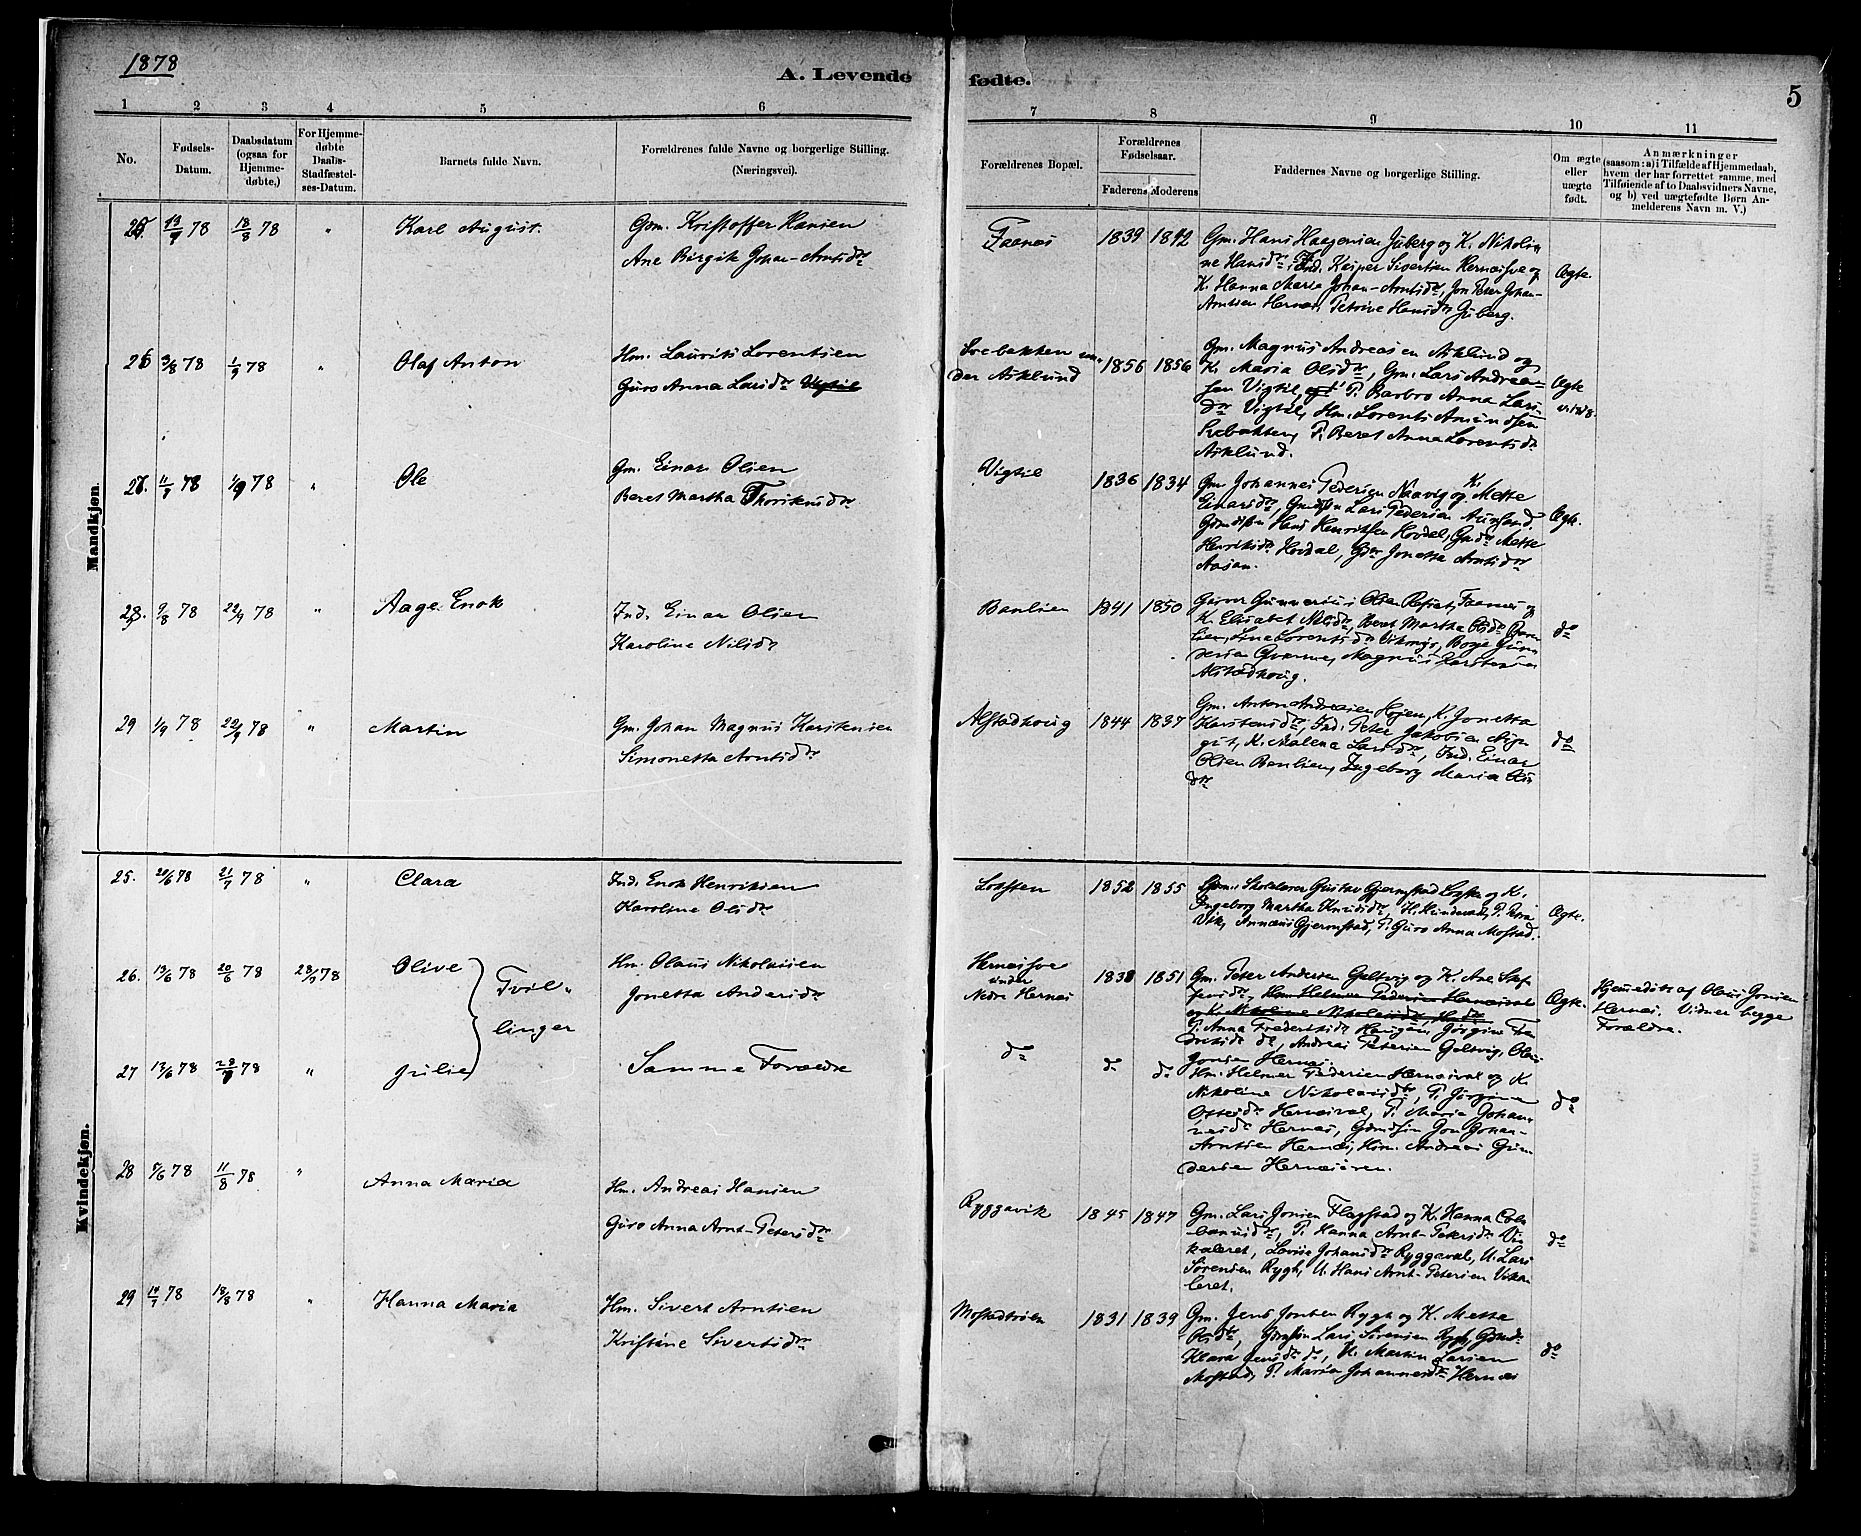 1878
A. Levende fødte.
5
1 2 3 4 5 6 7 8 9 10 11
No.
Fødsels-Datum.
Daabsdatum (ogsaa for Hjemme-døbte.)
For Hjemme-døbte Daabs-Stadfæstel-ses-Datum.
Barnets fulde Navn.
Forældrenes fulde Navne og borgerlige Stilling. (Næringsvei).
Forældrenes Bopæl.
Forældrenes Fødselsaar.
Faderens Moderens
Faddernes Navne og borgerlige Stilling.
Om ægte eller uægte født.
Anmærkninger
(saasom: a) i Tilfælde af Hjemmedaab,
hvem der har forrettet samme, med
Tilføiende af to Daabsvidners Navne,
og b) ved uægtefødte Børn An-
melderens Navn m. V.)
Mandkjøn.
25. 19/7 78 18/8 78 " Karl August.
Gm. Kristoffer Hansen
Ane Birgit Johan-Arntsdr
Faanes 1839 1842
Gm. Hans Haagensen Juberg og K. Nikoli-
ne Hansdr, Ind. Kasper Sivertsen Hernæsve og
K. Hanna Maria Johan-Arntsdr, Jon Peter Johan-
Arntsen Hernæs, Petrine Hansdr Juberg.
Ægte.
26 3/8 78 1/9 78 " Olaf Anton
Hm. Laurits Lorentsen
Guro Anna Larsdr Vigtil
Svebakken un-
der Asklund 1856 1856
Gm. Magnus Andreasen Asklund og
K. Maria Olsdr, Gm. Lars Andrea-
sen Vigtil, P. Barbro Anna Lars-
dr Vigtil, Hm. Lorents Amundsen
Svebakken, P. Beret Anna Lorentsdr
Asklund.
Ægte
27. 11/7 78 1/9 78 " Ole
Gm. Einar Olsen
Beret Martha Thoriknsdr
Vigtil 1836 1834
Gm Johannes Pedersen Naavig og K. Mette
Einarsdr, Lars Pedersen Aursand.
Hans Henriksen Hovdal, Mette
Henriksdr Hovdal, Jonetta Arntsdr
Aasan.
Ægte.
28. 9/8 78 22/9 78 " Aage Enok
Ind. Einar Olsen
Karoline Nilsdr
Banlien 1841 1850
Gunnerius Olsen Faanes og
K. Elisabet Nilsdr, Beret Martha Olsdr Ban-
lien, Lina Lorentsdr Vikavig, Boye Gun-
dersen, Magnus Karstensen
Alstadhoug.
do
29 1/9 78 22/9 78 " Martin
Gm. Johan Magnus Karstensen
Simonetta Arntsdr
Alstadhoug 1844 1837
Gm. Anton Andreasen Højen, K. Jonetta
Karstensdr, Ind. Peter Jakobsen
K. Malena Larsdr, Ind. Einar
Olsen Banlien, Ingeborg Maria Ols-
dr
do
Kvindekjøn.
25. 20/6 78 21/7 78 " Clara
Ind. Enok Henriksen
Karoline Olsdr
Lossten 1852 1855
Skolelærer Gustav Gjermstad og K.
Ingeborg Martha Knudsdr, P. Petra
Vik, Annæus Gjermstad, P. Guro Anna Mostad.
Ægte.
26. 13/6 78 20/6 78 28/7 78 Olive
Tvil-
linger
Hm. Olaus Nikolaisen
Jonetta Andersdr
Hernæsve
under
Nedre Hernæs 1838 1851
Gm. Peter Andersen Galtvig og K. Ane Stef-
fensdr, Hm Helmer Pedersen Hernæsval
og K. Nikoline Nikolaisdr
P. Anna Fredriksdr Haugan, Jørgine Fre-
driksdr do, Andreas Petersen Galtvig, Olaus
Jonsen Hernæs.
Ægte.
Hjemmedøbt af Olaus Jonsen
Hernæs. Vidner begge
Forældre.
27 13/6 78 28/7 78 " Julie
Samme Forældre
do do do
Hm. Helmer Pedersen Hernæsval og K.
Nikoline Nikolaisdr, P. Jørgine
Ottesdr Hernæsval, P. Maria Johan-
nesdr Hernæs, Jon Johan-
Arntsen Hernæs, Hm. Andreas Gun-
dersen Hernæsøren.
do
28 5/6 78 11/8 78 " Anna Maria
Hm. Andreas Hansen
Guro Anna Arnt-Petersdr
Ryggavik 1845 1847
Gm. Lars Jonsen Flagstad og K. Hanna Col-
banusdr, P. Hanna Arnt-Petersdr Vi-
kaleret, Lovise Johansdr Ryggaval, U. Lars
Sørensen Rygh, U. Hans Arnt-Petersen Vika-
leret.
do
29 10/7 78 18/8 78 " Hanna Maria
Hm. Sivert Arntsen
Kristine Sivertsdr
Mostadtrøen 1831 1839
Gm. Jens Jonsen Rygh og K. Metta
Olsdr, Lars Sørensen Rygh,
Klara Jensdr do, U. Martin Larsen
Mostad, P. Maria Johannesdr Hernæs
do